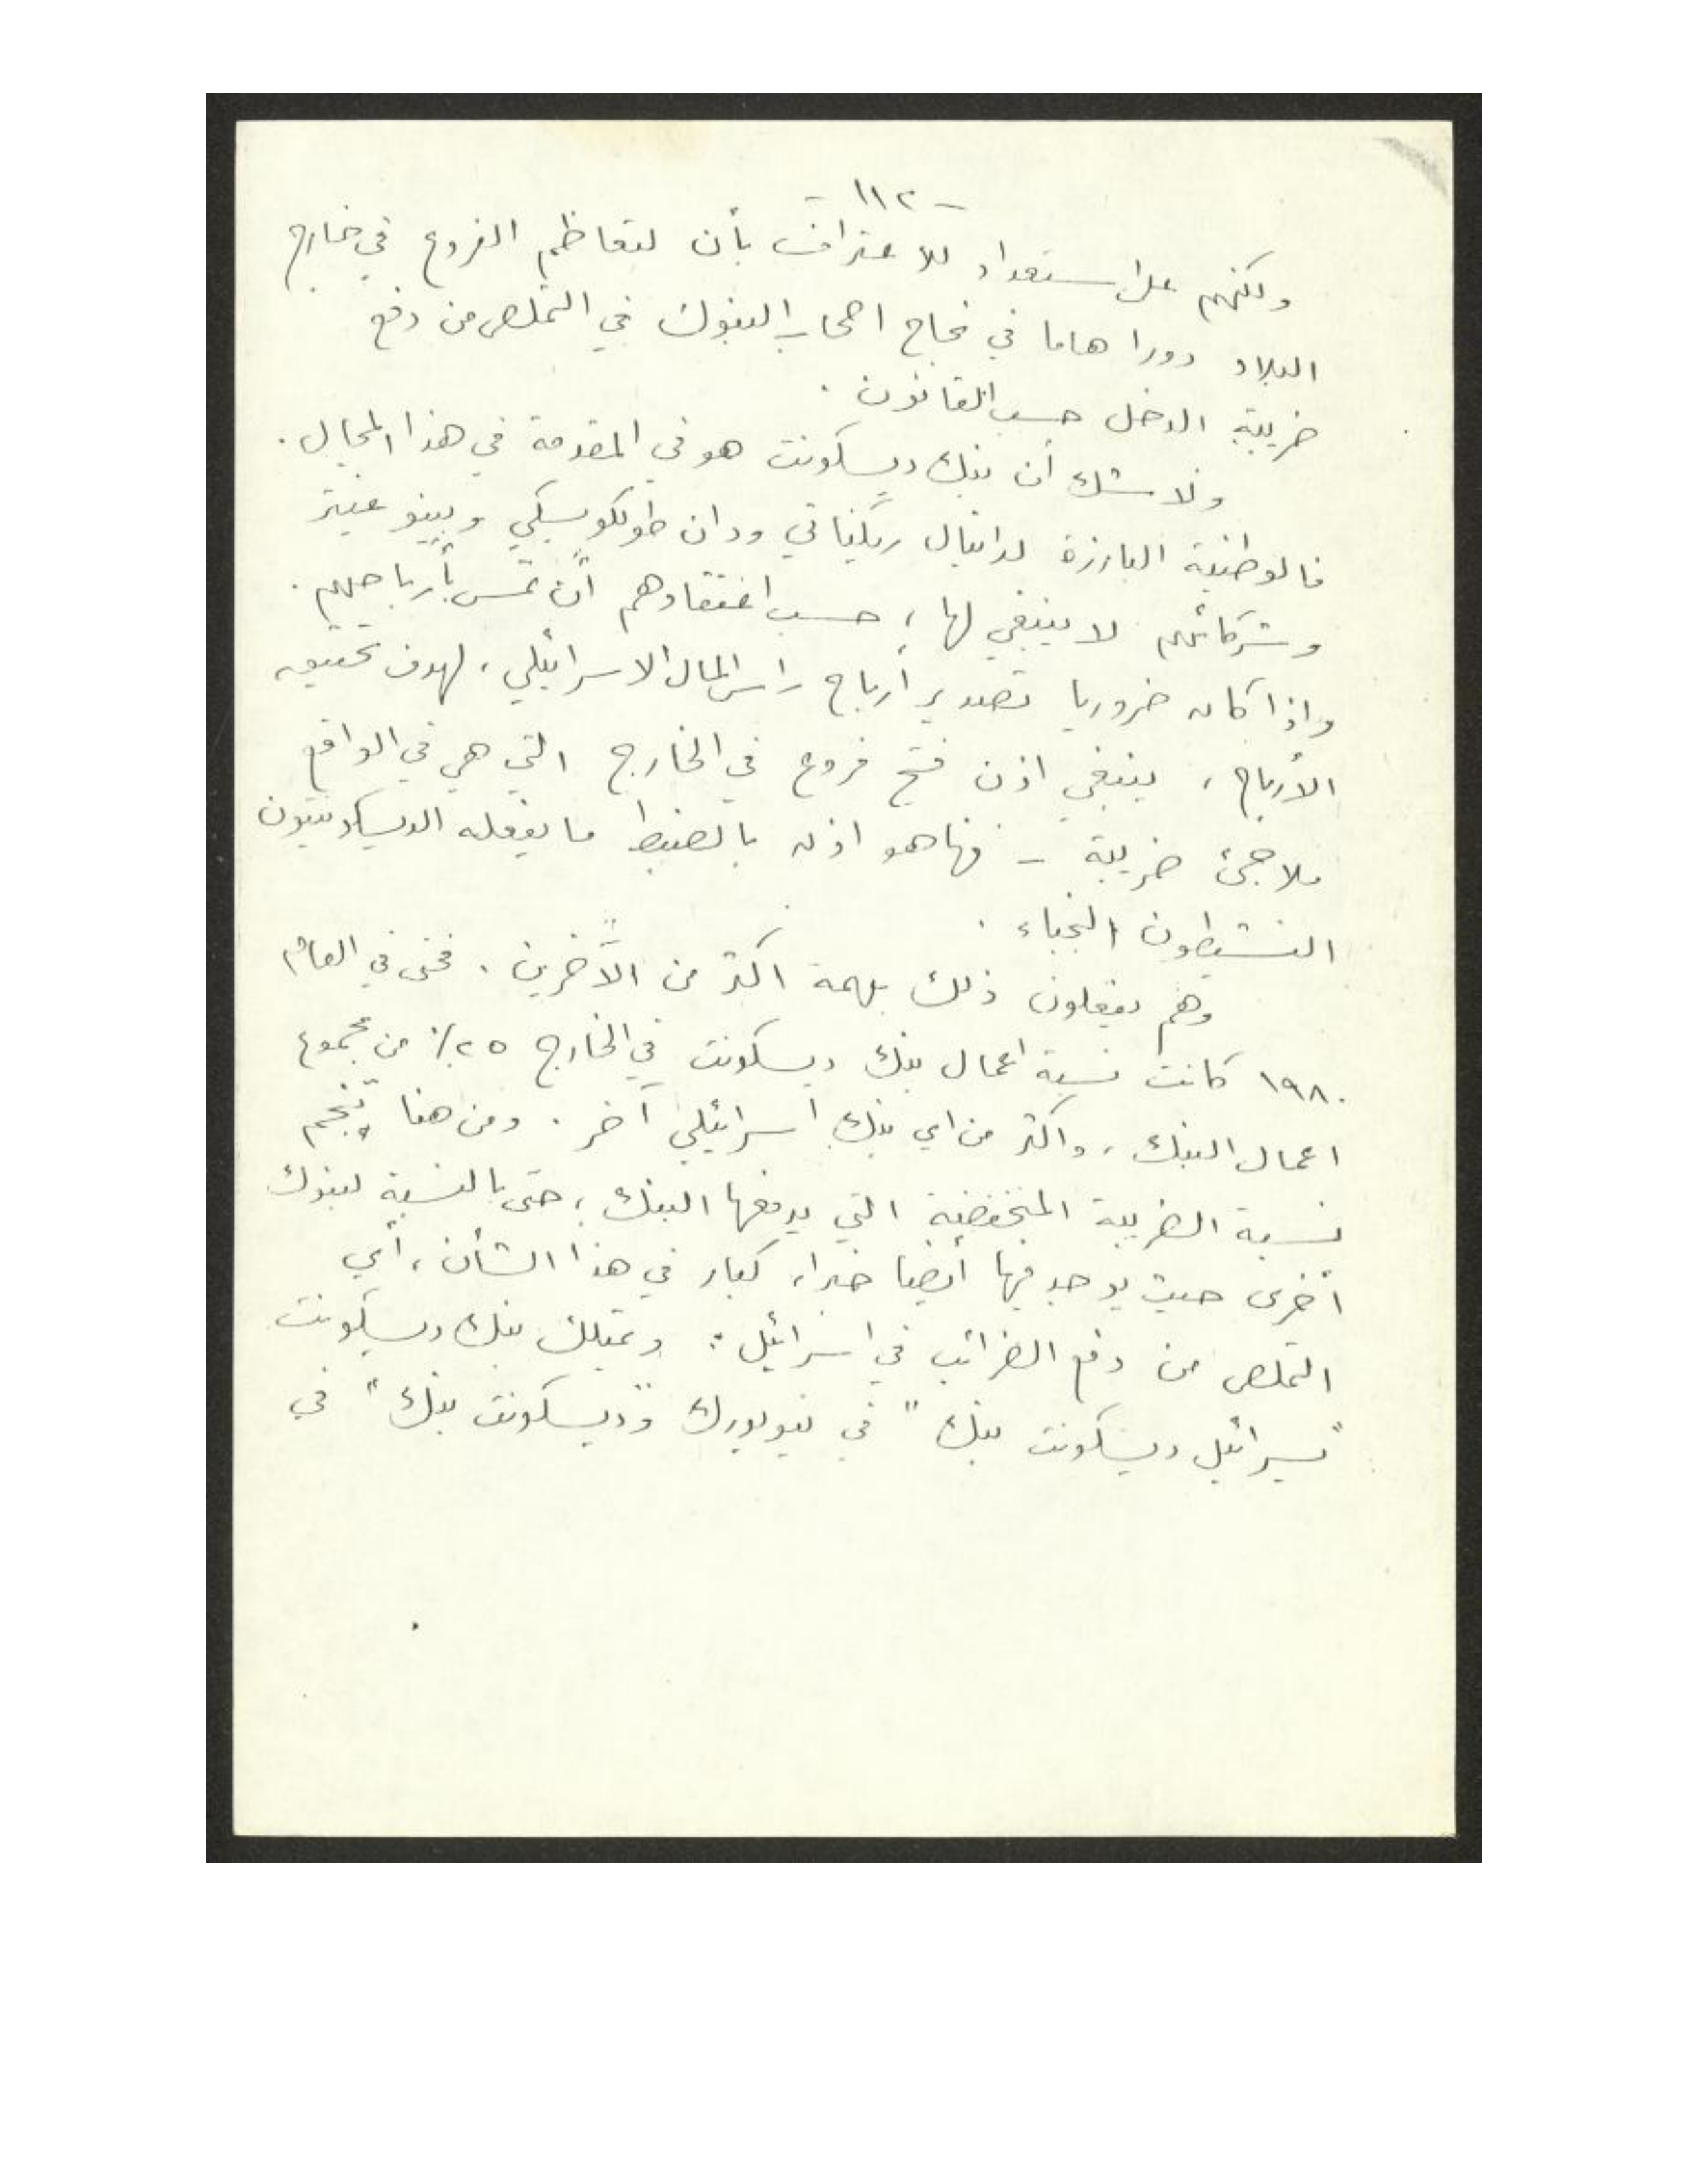 - ١١٢ -
ولكنهم على استعداد للاعتراف بأن لتعاظم الفروع في خارج
البلاد دورا هاما في نجاح اصحاب البنوك في التملص من دفع
ضريبة الدخل حسب القانون .
ولا شك أن بنك ديسكونت هو في المقدمة في هذا المجال .
فالوطنية البارزة لدانيال ريكناتي ودان طولكوبسكي وبينو غيتر
وشركائهم لا ينبغي لها ، حسب اعتقادهم أن تمس بأرباحهم .
واذا كان ضروريا تصدير أرباح راس المال الاسرائيلي ، لهدف تحقيق
الأرباح ، ينبغي اذن فتح فروع في الخارج التي هي في الواقع
ملاجئ ضريبة - فها هو اذن بالضبط ما يفعله الديسكونتيون
النشيطون النجباء .
وهم يفعلون ذلك بهمة اكثر من الآخرين . فحتى في العام
١٩٨٠ كانت نسبة اعمال بنك ديسكونت في الخارج ٢٥٪ من مجموع
اعمال البنك ، واكثر من اي بنك اسرائيلي آخر . ومن هنا تنجم
نسبة الضريبة المنخفضة التي يدفعها البنك ، حتى بالنسبة لبنوك
أخرى حيث يوجد فيها أيضا خبراء كبار في هذا الشأن ، أي
التملص من دفع الضرائب في اسرائيل : ويمتلك بنك ديسكونت
"يسرائيل ديسكونت بنك" في نيويورك و"ديسكونت بنك" في